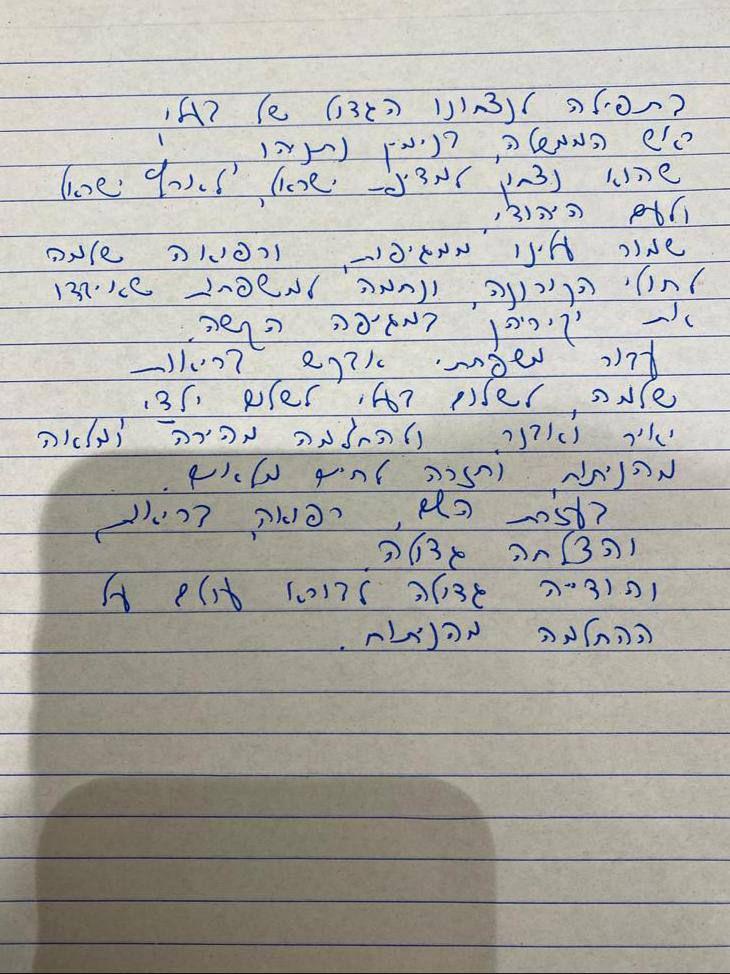 בתפילה לנצחונו הגדול של בעלי
ראש הממשלה, בנימין נתניהו,
שהוא נצחון למדינת ישראל, לארץ ישראל
ולעם היהודי.
שמור עלינו ממגיפות, ורפואה שלמה
לחולי הקורונה, ונחמה למשפחות שאיבדו
את יקיריהן במגיפה הקשה.
עבור משפחתי אבקש בריאות
שלמה, לשלום בעלי לשלום ילדי,
יאיר ואבנר, ולהחלמה מהירה ומלאה
מהניתוח, וחזרה לחיים מלאים.
בעזרת השם, רפואה, בריאות,
והצלחה גדולה.
ותודייה גדולה לבורא עולם על
ההחלמה מהניתוח.